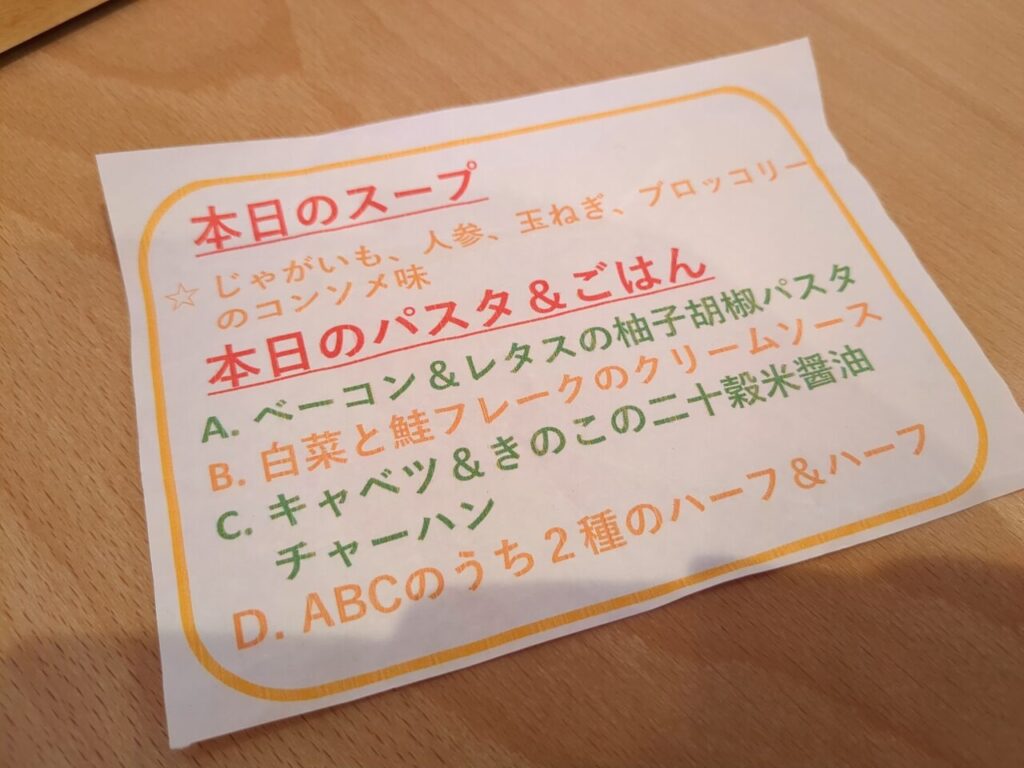 本日のスープ
☆ じゃがいも、人参、玉ねぎ、ブロッコリー
のコンソメ味
本日のパスタ＆ごはん
A. ベーコン＆レタスの柚子胡椒パスタ
B. 白菜と鮭フレークのクリームソース
C. キャベツ＆きのこの二十穀米醤油
チャーハン
D. ABCのうち２種のハーフ＆ハーフ